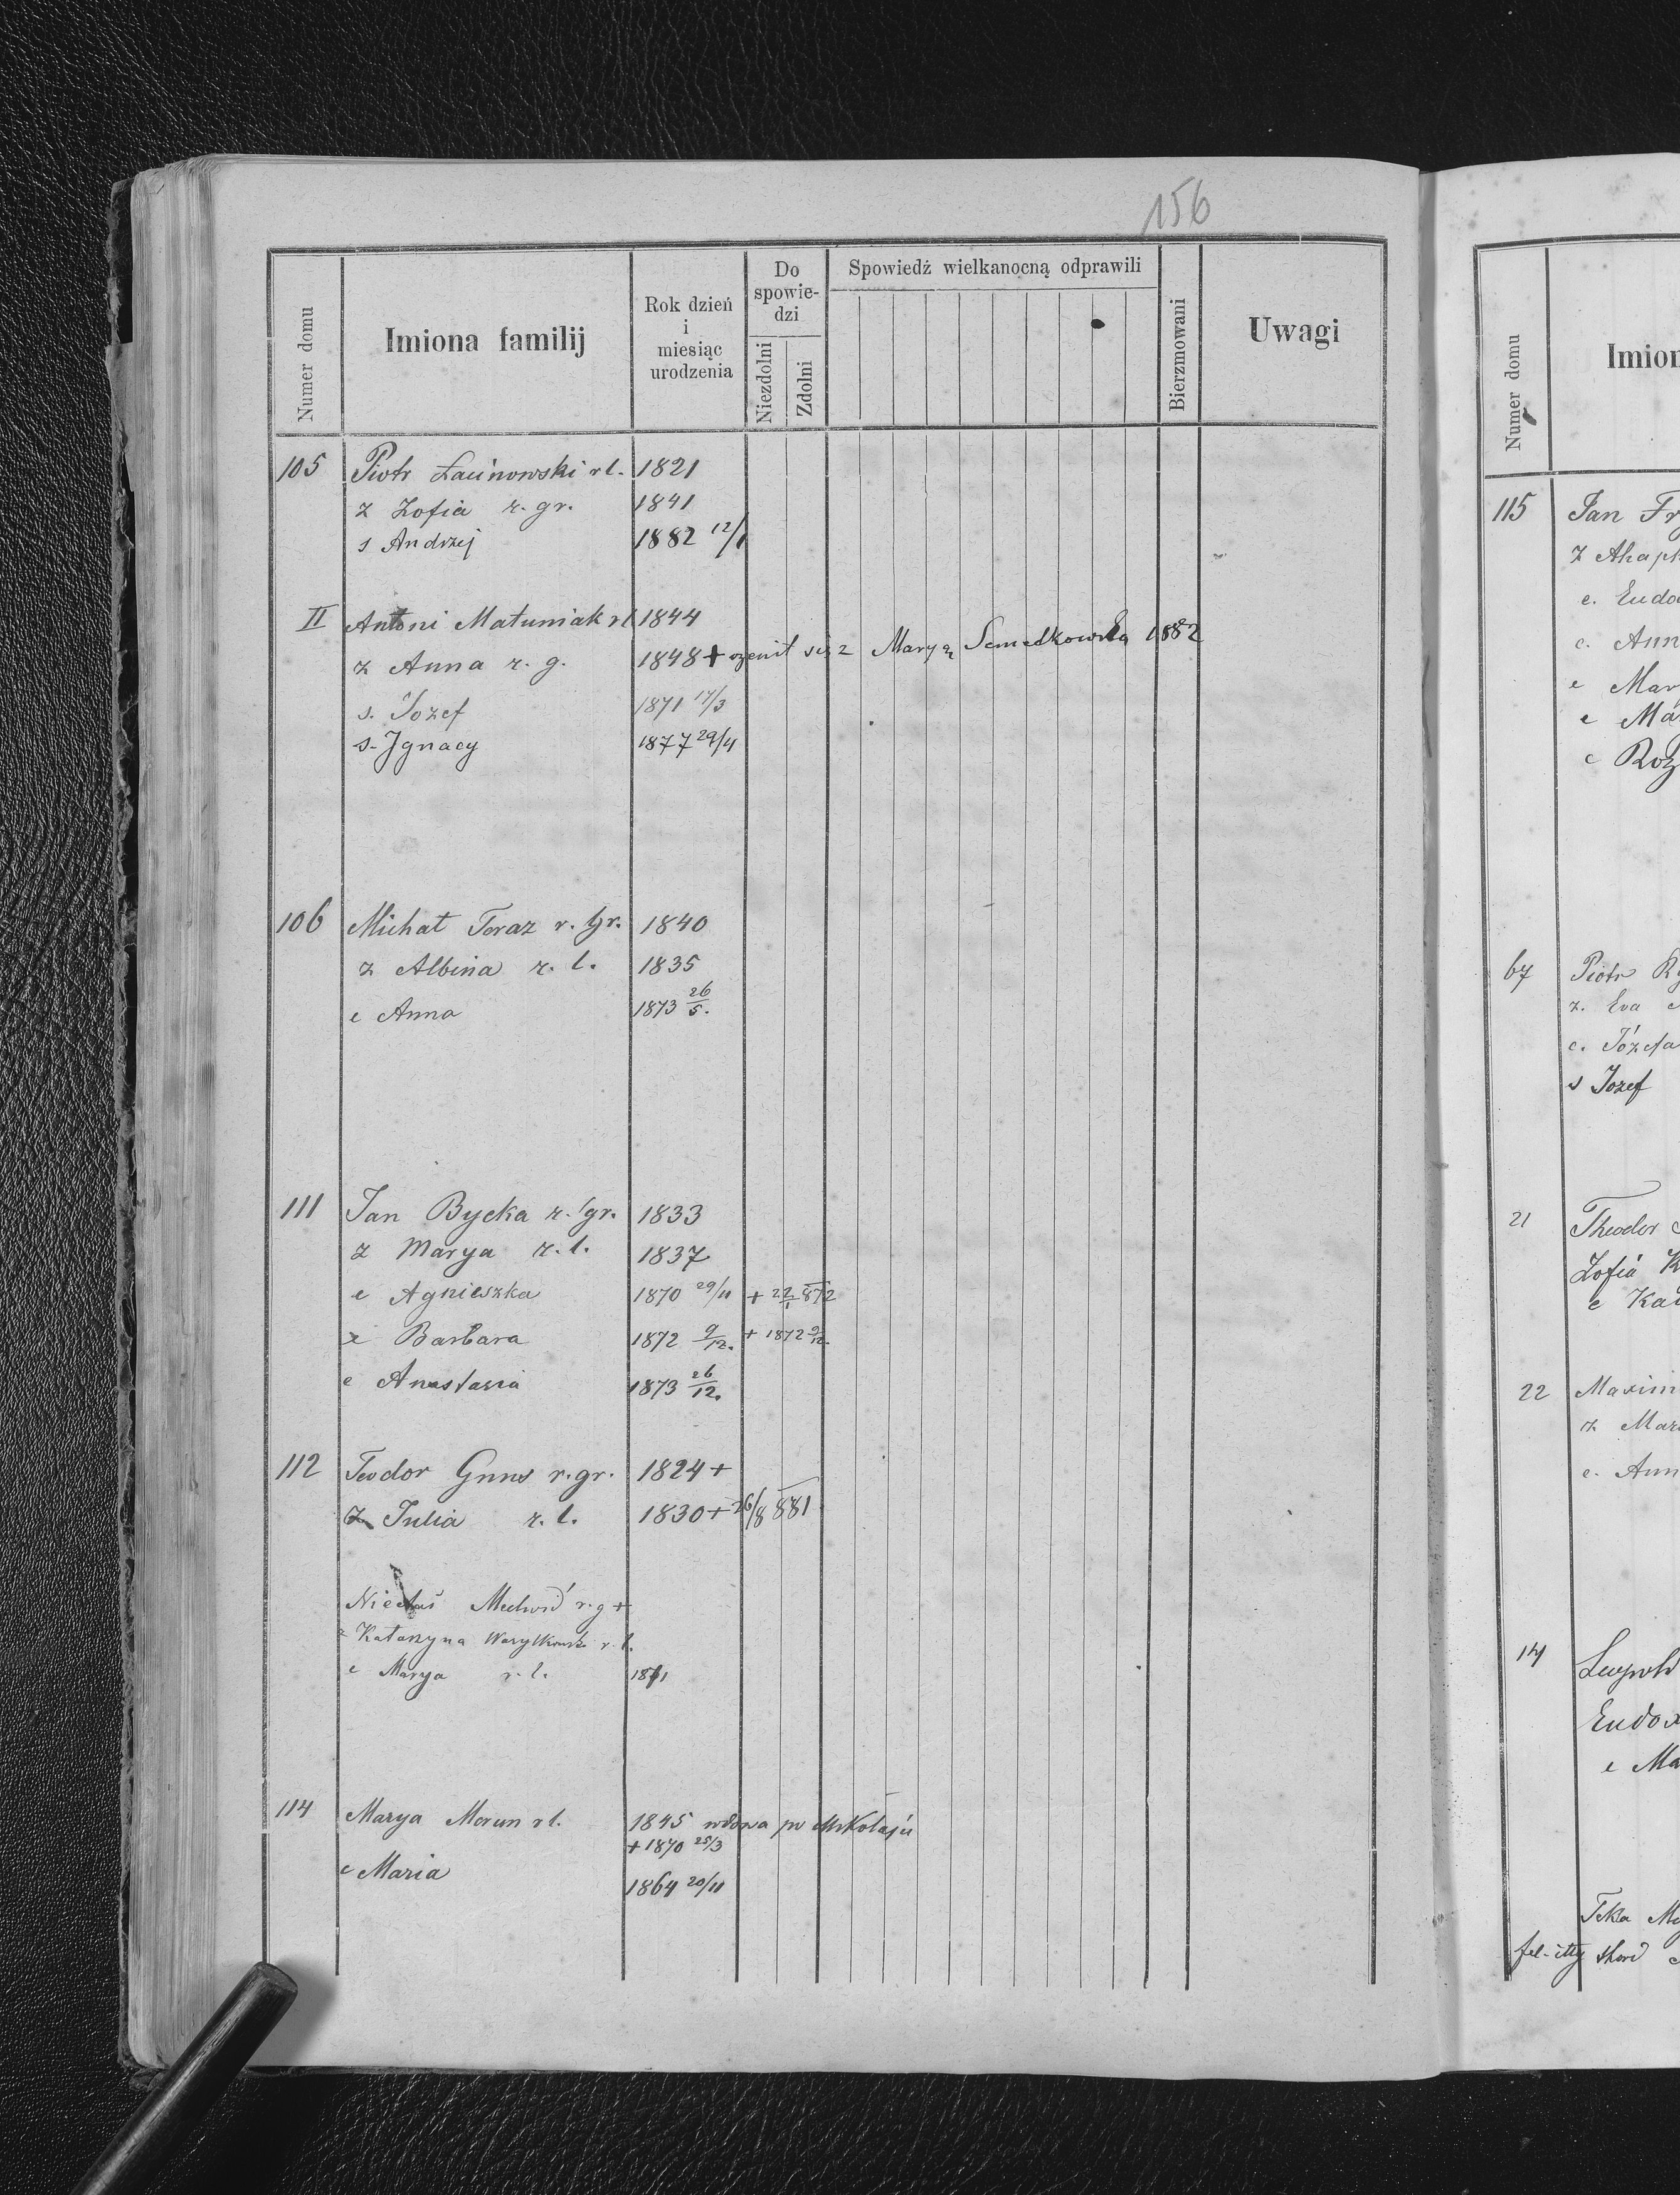 156
Numer domu
Imiona familij
Rok dzień
i
miesiąc
urodzenia
Do
spowie-
dzi
Niezdolni
Zdolni
Spowiedź wielkanocną odprawili
Bierzmowani
Uwagi
105 Piotr Łacinowski rl. 1821
z Zofia r. gr. 1841
s Andrzej 1882 12/1
II Antoni Matuniak rl 1844
z Anna r. g. 1848 + ożenił się z Maryą 1882
s. Jozef 1871 17/3
s. Ignacy 1877 29/4
106 Michał Toraz r. Gr. 1840
z Albina r. l. 1835
c Anna 1873 26/5.
111 Jan Bycka r. gr. 1833
z Marya r. l. 1837
c Agnieszka 1870 29/11 + 22/1 872
c Barbara 1872 9/12. + 1872 9/12.
c Anastasia 1873 26/12.
112 Teodor Gnus r. gr. 1824 +
z Julia r. l. 1830 + 26/8 881
r. g +
z Katarzyna r. l.
c Marya r. l.
114 Marya Morun rl. 1845 wdowa po Mikołaju
+ 1870 25/3
c Maria 1864 20/11
Numer domu
Imion
115 Jan Fr
z Ahap
c. Eudo
c. Ann
c Mar
c Ma
c Roz
67 Piotr
z. Eva
c. Józefa
s Jozef
21 Theodor
Zofia K
c Ka
22 Maxim
z Mar
c. Ann
14
Eudox
c Ma
Tekla